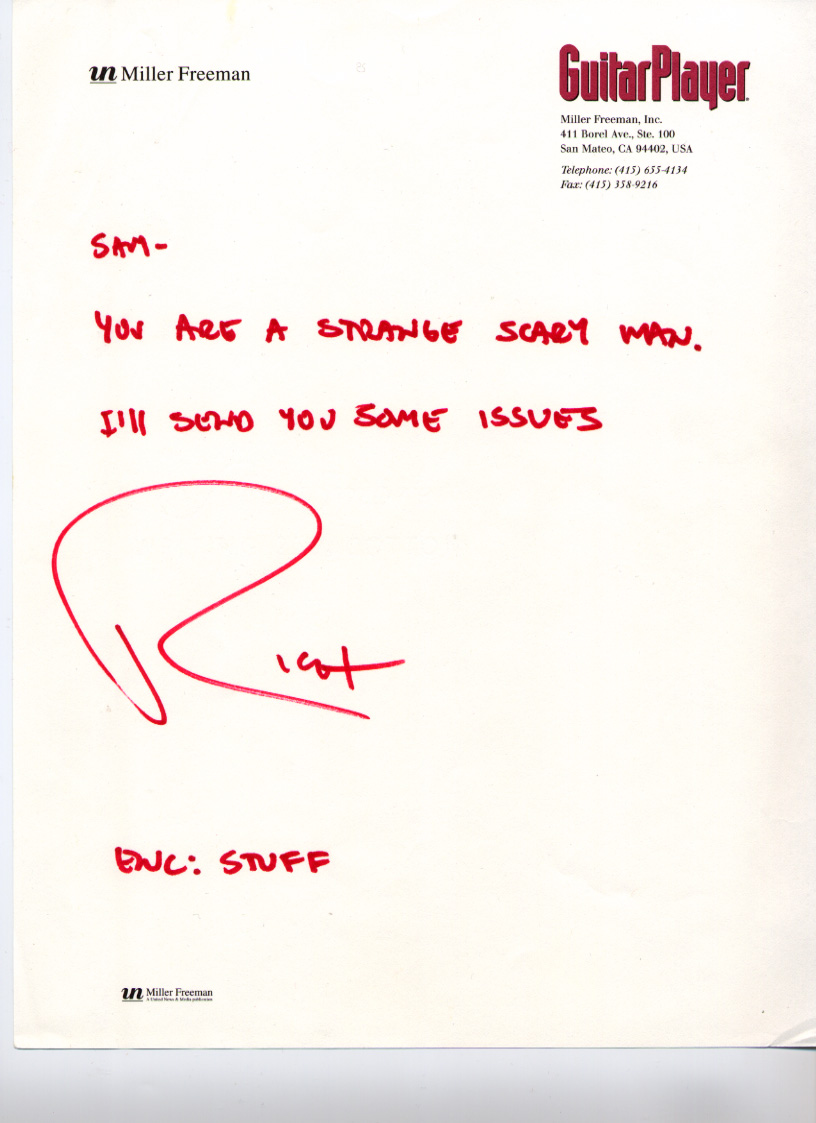 un Miller Freeman
GuitarPlayer
Miller Freeman, Inc.
411 Borel Ave., Ste. 100
San Mateo, CA 94402, USA
Telephone: (415) 655-4134
Fax: (415) 358-9216
SAM-
YOU ARE A STRANGE SCARY MAN.
I'll SEND YOU SOME ISSUES
ENC: STUFF
un Miller Freeman
A United News & Media publication